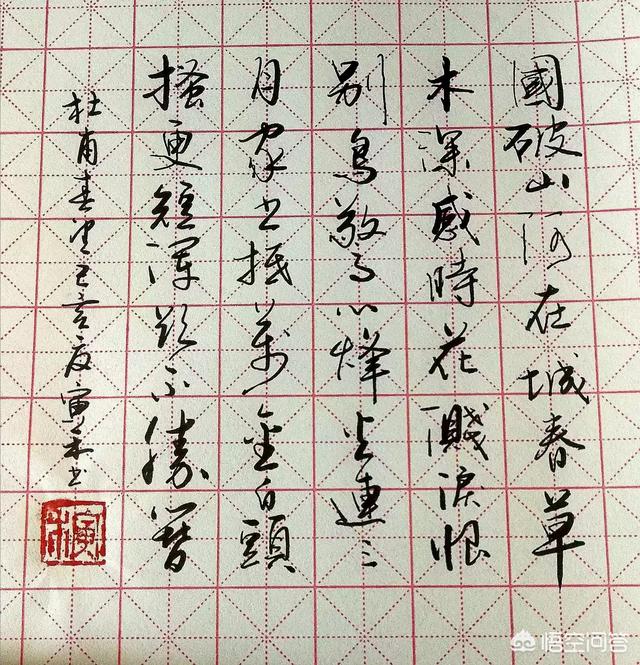 國破山河在城春草
木深感時花濺淚恨
别鳥驚心烽火連三
月家书抵萬金白頭
搔更短渾欲不勝簪
杜甫春望己亥夏寅木书
悟空问答